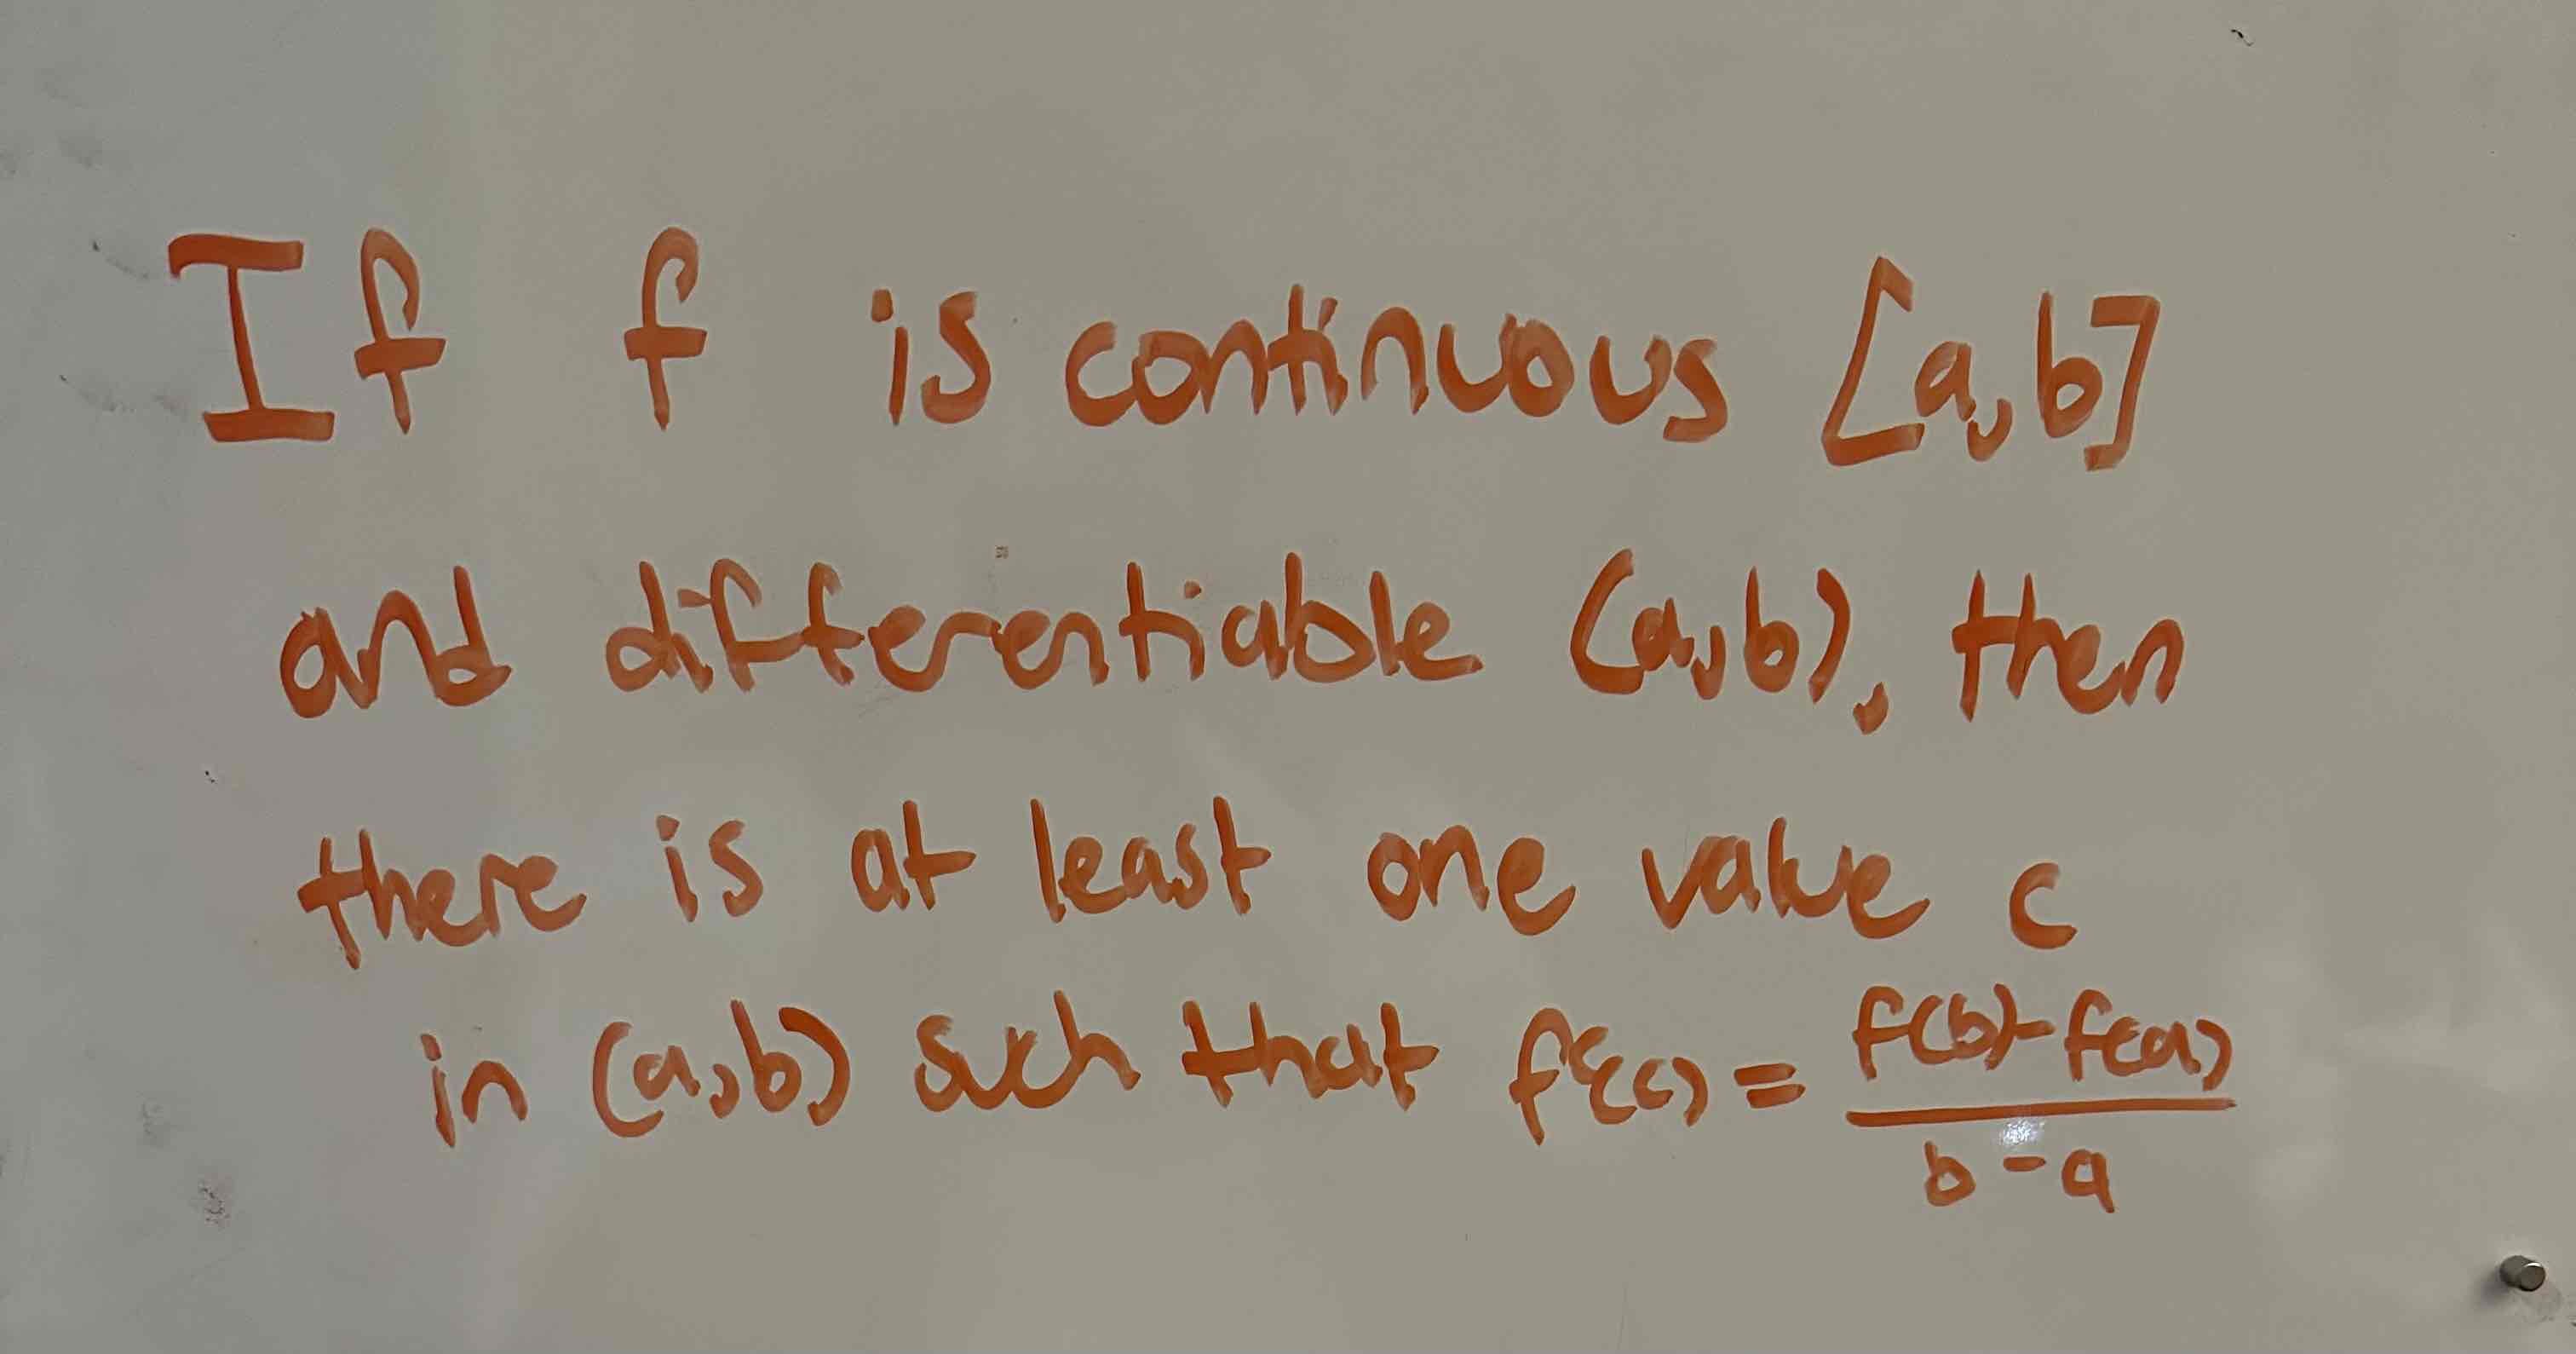 If f is continuous [a,b]
and differentiable (a,b), then
there is at least one value c
in (a,b) such that f'(c) = f(b)-f(a)
b-a